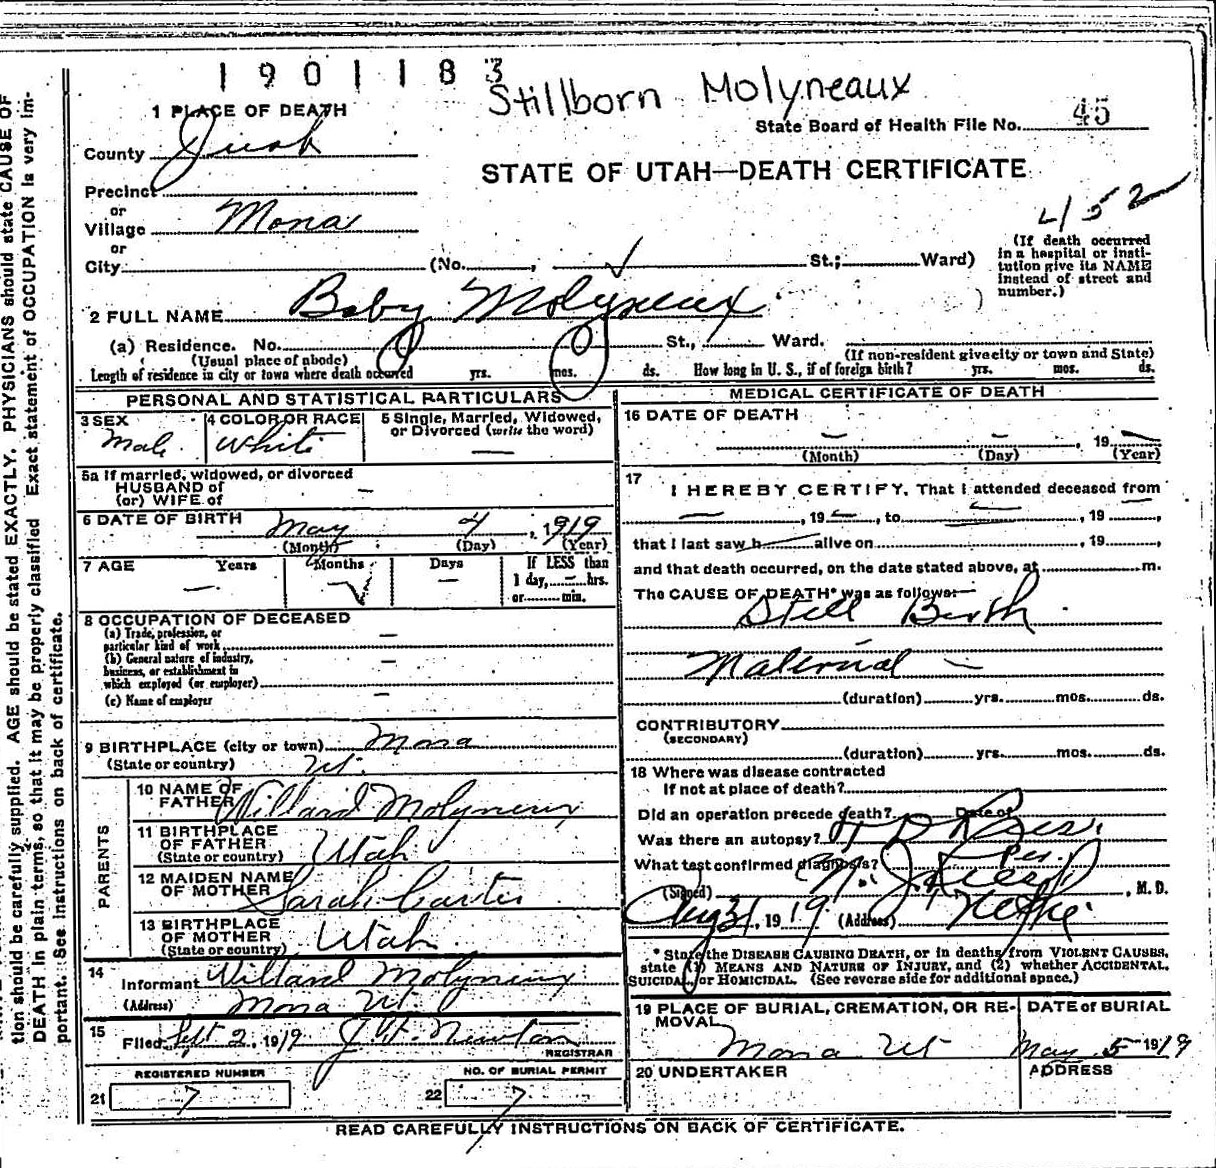 1901183
Stillborn Molyneaux
1 PLACE OF DEATH
State Board of Health File No. 45
County Juab
STATE OF UTAH—DEATH CERTIFICATE
Precinct
or
Village Mona
452
or
City (No. , St.; Ward)
(If death occurred in a hospital or institution give its NAME instead of street and number.)
2 FULL NAME Baby Molyneux
(a) Residence. No. St., Ward.
(Usual place of abode)
(If non-resident give city or town and State)
Length of residence in city or town where death occurred yrs. mos. ds. How long in U. S., if of foreign birth? yrs. mos. ds.
PERSONAL AND STATISTICAL PARTICULARS
3 SEX
Male
4 COLOR OR RACE
White
5 Single, Married, Widowed, or Divorced (write the word)
—
5a If married, widowed, or divorced
HUSBAND of
(or) WIFE of —
6 DATE OF BIRTH May 4, 1919
(Month) (Day) (Year)
7 AGE Years Months Days
— —
If LESS than
1 day, — hrs.
or min.
8 OCCUPATION OF DECEASED
(a) Trade, profession, or
particular kind of work —
(b) General nature of industry,
business, or establishment in
which employed (or employer) —
(c) Name of employer —
9 BIRTHPLACE (city or town) Mona
(State or country) Ut.
PARENTS
10 NAME OF FATHER Willard Molyneux
11 BIRTHPLACE OF FATHER
(State or country) Utah
12 MAIDEN NAME OF MOTHER Sarah Carter
13 BIRTHPLACE OF MOTHER
(State or country) Utah
14
Informant Willard Molyneux
(Address) Mona Ut
15
Filed Sept 2, 1919 J. W. Newton
REGISTRAR
REGISTERED NUMBER
21 7
NO. OF BURIAL PERMIT
22 7
MEDICAL CERTIFICATE OF DEATH
16 DATE OF DEATH
— — , 19 —
(Month) (Day) (Year)
17
I HEREBY CERTIFY, That I attended deceased from
— , 19 — , to — , 19 — ,
that I last saw h — alive on , 19 ,
and that death occurred, on the date stated above, at m.
The CAUSE OF DEATH* was as follows:
Still Birth
Maternal —
(duration) yrs. mos. ds.
CONTRIBUTORY
(SECONDARY)
(duration) yrs. mos. ds.
18 Where was disease contracted
If not at place of death?
Did an operation precede death? Date of
Was there an autopsy?
What test confirmed diagnosis? Per.
(Signed) , M. D.
Aug 31, 1919 (Address) Nephi
* State the DISEASE CAUSING DEATH, or in deaths from VIOLENT CAUSES,
state (1) MEANS AND NATURE OF INJURY, and (2) whether ACCIDENTAL,
SUICIDAL, or HOMICIDAL. (See reverse side for additional space.)
19 PLACE OF BURIAL, CREMATION, OR REMOVAL
Mona Ut
DATE of BURIAL
May 5 1919
20 UNDERTAKER
ADDRESS
READ CAREFULLY INSTRUCTIONS ON BACK OF CERTIFICATE.
tion should be carefully supplied. AGE should be stated EXACTLY. PHYSICIANS should state CAUSE OF
DEATH in plain terms, so that it may be properly classified. Exact statement of OCCUPATION is very im-
portant. See instructions on back of certificate.